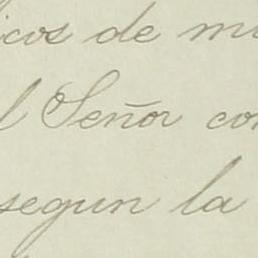 icos de mi
l Señor con
segun la